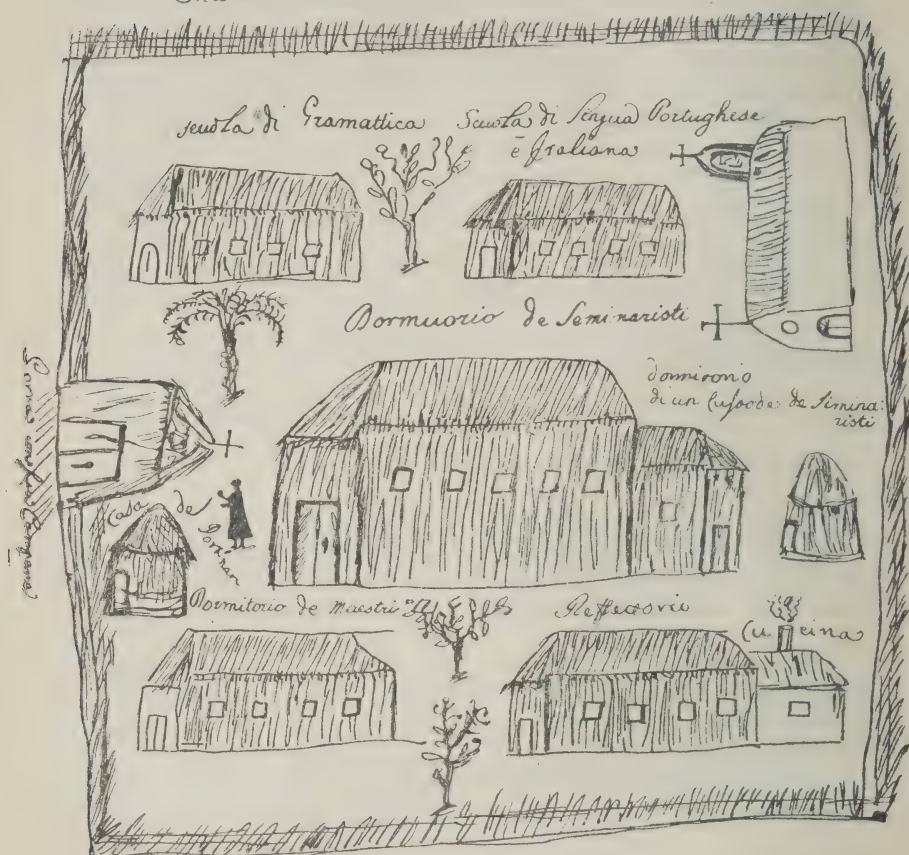 scuola di Gramattica
Scuola di lingua Portughese
e Italiana
Dormitorio de Seminaristi
dormitorio
di un Custode de Simina:
risti
Casa del Portinar
Dormitorio de Maestri
Reffettorio
Cucina